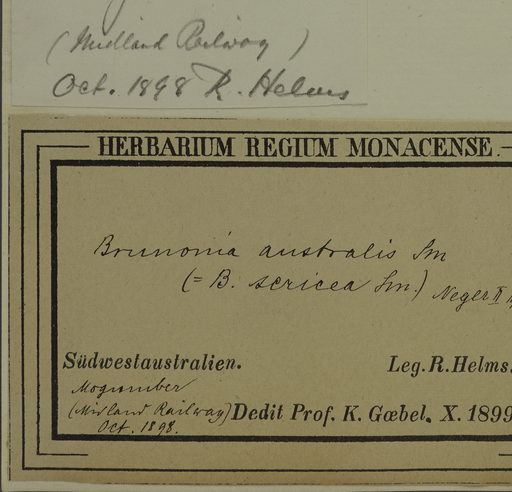 (Midland Railway)
Oct. 1898 R. Helms
HERBARIUM REGIUM MONACENSE.
Brunonia australis Sm
(= B. sericea Sm.) Neger II
Südwestaustralien.
Leg. R. Helms.
Mogumber
(Midland Railway)
Oct. 1898.
Dedit Prof. K. Gœbel. X. 1899